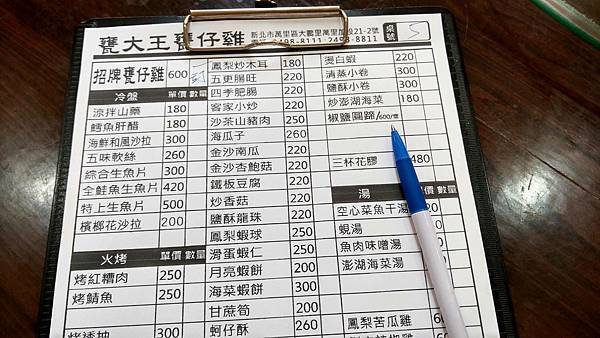 甕大王甕仔雞 新北市萬里區大鵬里萬里加投21-2號
2498-8111 · 2498-8811
桌號 5
招牌甕仔雞 600
冷盤 單價 數量
涼拌山藥 180
鱈魚肝醋 180
海鮮和風沙拉 300
五味軟絲 260
綜合生魚片 300
全鮭魚生魚片 420
特上生魚片 500
檳榔花沙拉 200
火烤 單價 數量
烤紅糟肉 250
烤鯖魚 250
300
鳳梨炒木耳 180
五更腸旺 220
四季肥腸 220
客家小炒 220
沙茶山豬肉 250
海瓜子 260
金沙南瓜 220
金沙杏鮑菇 220
鐵板豆腐 220
炒香菇 220
鹽酥龍珠 220
鳳梨蝦球 250
滑蛋蝦仁 250
月亮蝦餅 200
海菜蝦餅 300
甘蔗筍 200
蚵仔酥 260
燙白蝦 220
清蒸小卷 300
鹽酥小卷 300
炒澎湖海菜 180
椒鹽圓蹄/600/隻
三杯花膠 480
湯 數量
空心菜魚干湯 20
蜆湯
魚肉味噌湯
澎湖海菜湯
鳳梨苦瓜雞